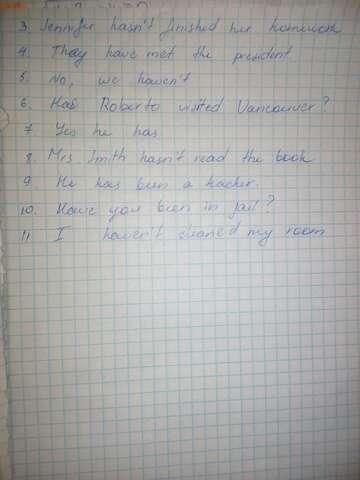 3. Jennifer hasn't finished her homework
4. They have met the president
5. No, we haven't
6. Has Roberto visited Vancouver?
7. Yes he has
8. Mrs Smith hasn't read the book
9. He has been a teacher.
10. Have you been in jail?
11. I haven't cleaned my room